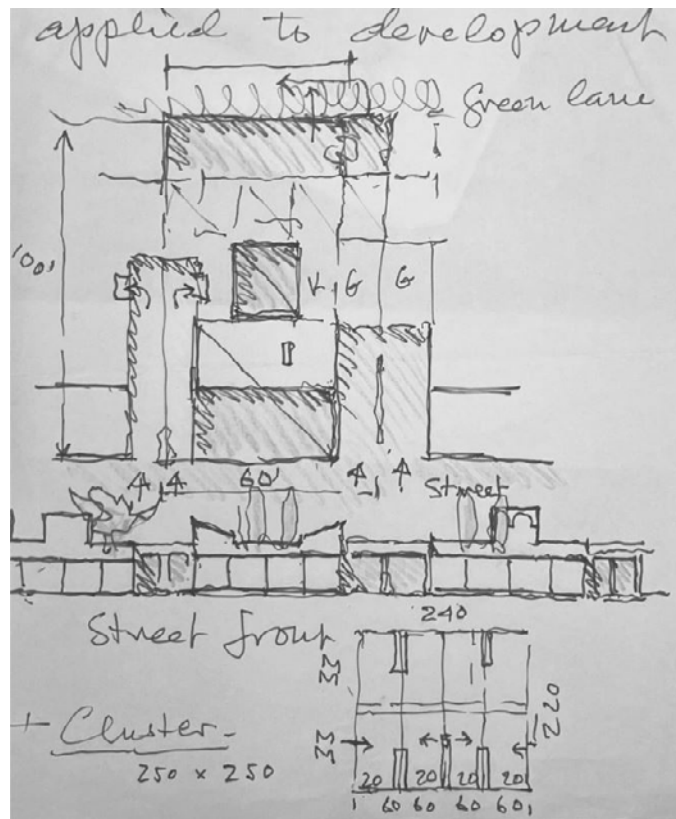 applied to development
Green lane
100'
V G G
60'
Street
Street front
240
220
+ Cluster
250 x 250
20 20 20 20
60 60 60 60